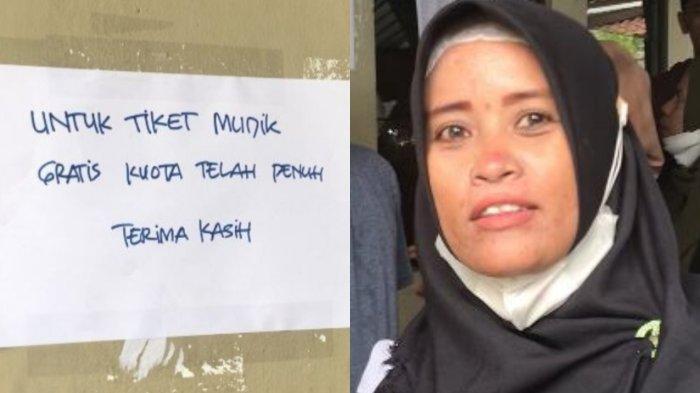 UNTUK TIKET MUDIK
GRATIS KUOTA TELAH PENUH
TERIMA KASIH